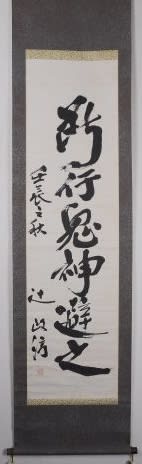 断行鬼神避之
壬辰之秋
辻政信